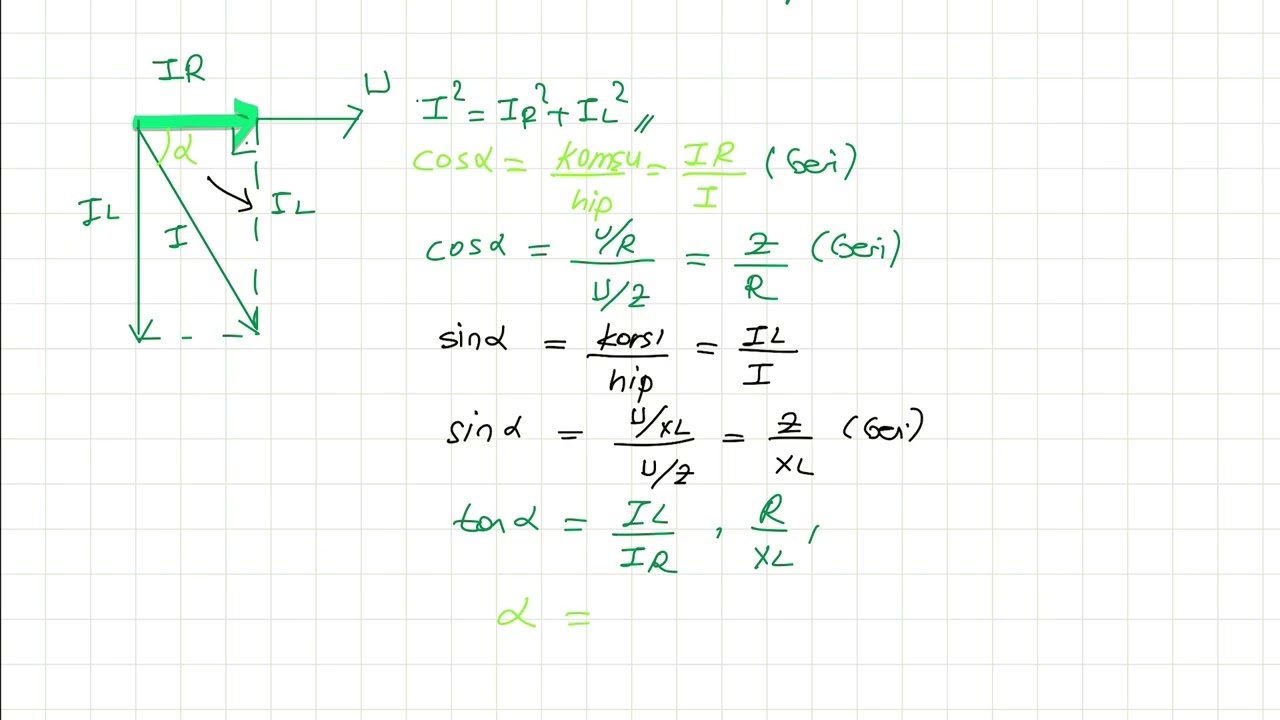 IR
U
α
IL
I
IL
I² = IR² + IL² //
cosα = komşu/hip = IR/I (Geri)
cosα = U/R / U/Z = Z/R (Geri)
sinα = karsı/hip = IL/I
sinα = U/XL / U/Z = Z/XL (Geri)
tanα = IL/IR , R/XL ,
α =